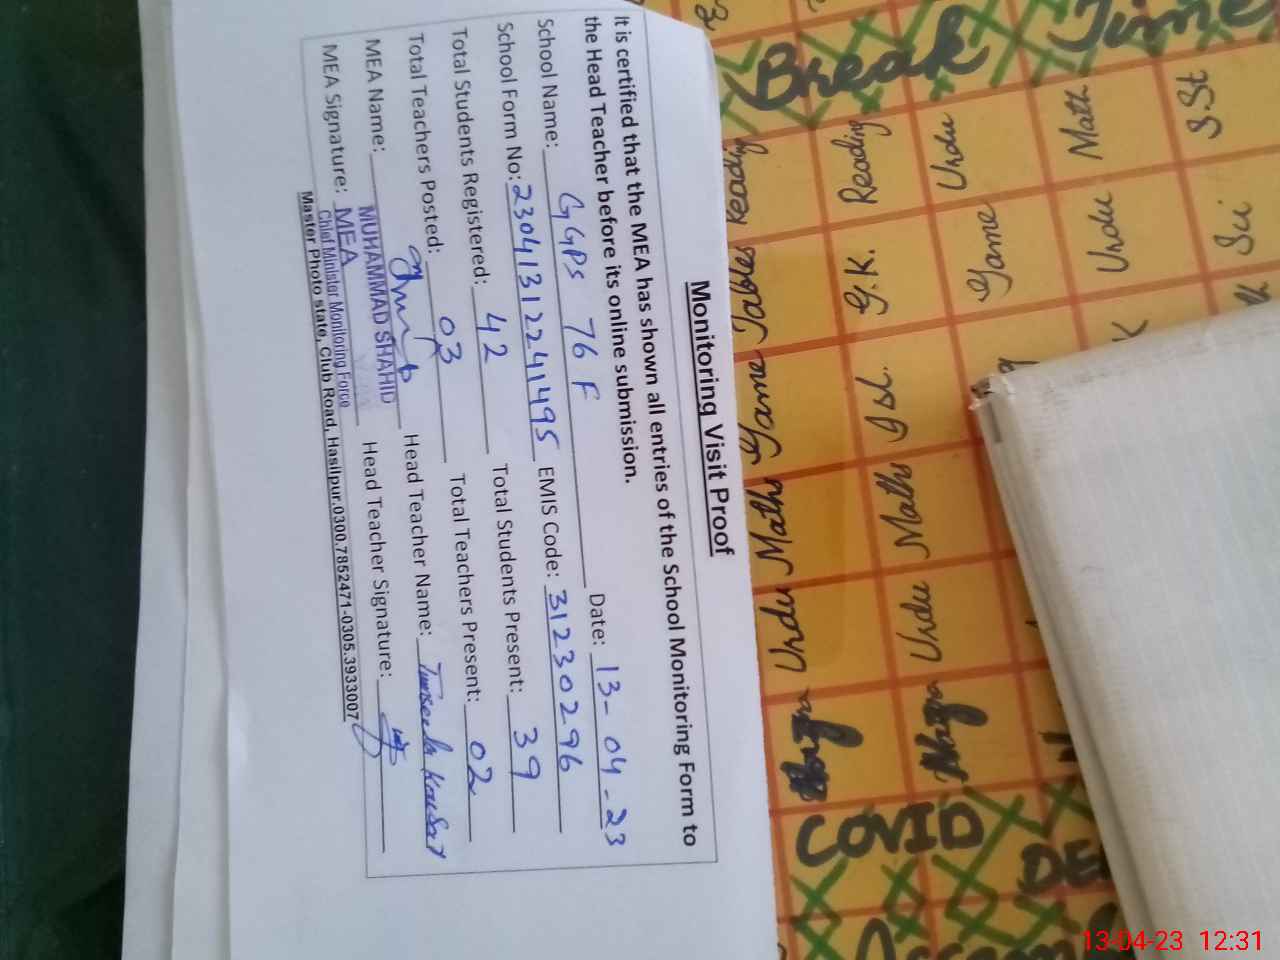 Monitoring Visit Proof
It is certified that the MEA has shown all entries of the School Monitoring Form to
the Head Teacher before its online submission.
School Name: GGPS 76 F Date: 13-04-23
School Form No: 2304131224 1495 EMIS Code: 31230296
Total Students Registered: 42 Total Students Present: 39
Total Teachers Posted: 03 Total Teachers Present: 02
MEA Name: MUHAMMAD SHAHID Head Teacher Name: Kausar
MEA Signature: MEA Head Teacher Signature:
Chief Minister Monitoring Force
Master Photo state, Club Road, Hasilpur.0300.7852471-0305.3933007
Break Time
Urdu Maths Game Tables Reading
Nazra Urdu Maths Isl. G.K. Reading
Game Urdu
Urdu Math
Sci S.St
COVID
13-04-23 12:31